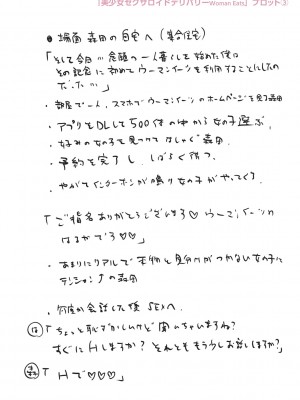 「美少女セクサロイドデリバリーWoman Eats」プロット③
● 場面 森田の自宅へ（集合住宅）
「そして今日… 念願の一人暮しを始めた僕は
その記念に初めてウーマンイーツを利用することにしたの
だ…」
・部屋で一人、スマホでウーマンイーツのホームページを見る森田
・アプリをDLして500体の中から女の子選ぶ、
・好みの女の子を見つけてはしゃぐ森田
・予約を完了し、しばらく待つ、
・やがてインターホンが鳴り女の子がやってくる
「ご指名ありがとうございます♡ ウーマンイーツの
はるかです♡♡」
・あまりにリアルで本物と見分けがつかない女の子に
テンション↑の森田
・何度か会話した後SEXへ
は「ちょっと恥ずかしいけど聞いちゃいますね？
すぐにHしますか？ それとももう少しお話しますか？」
森「Hで♡♡♡」